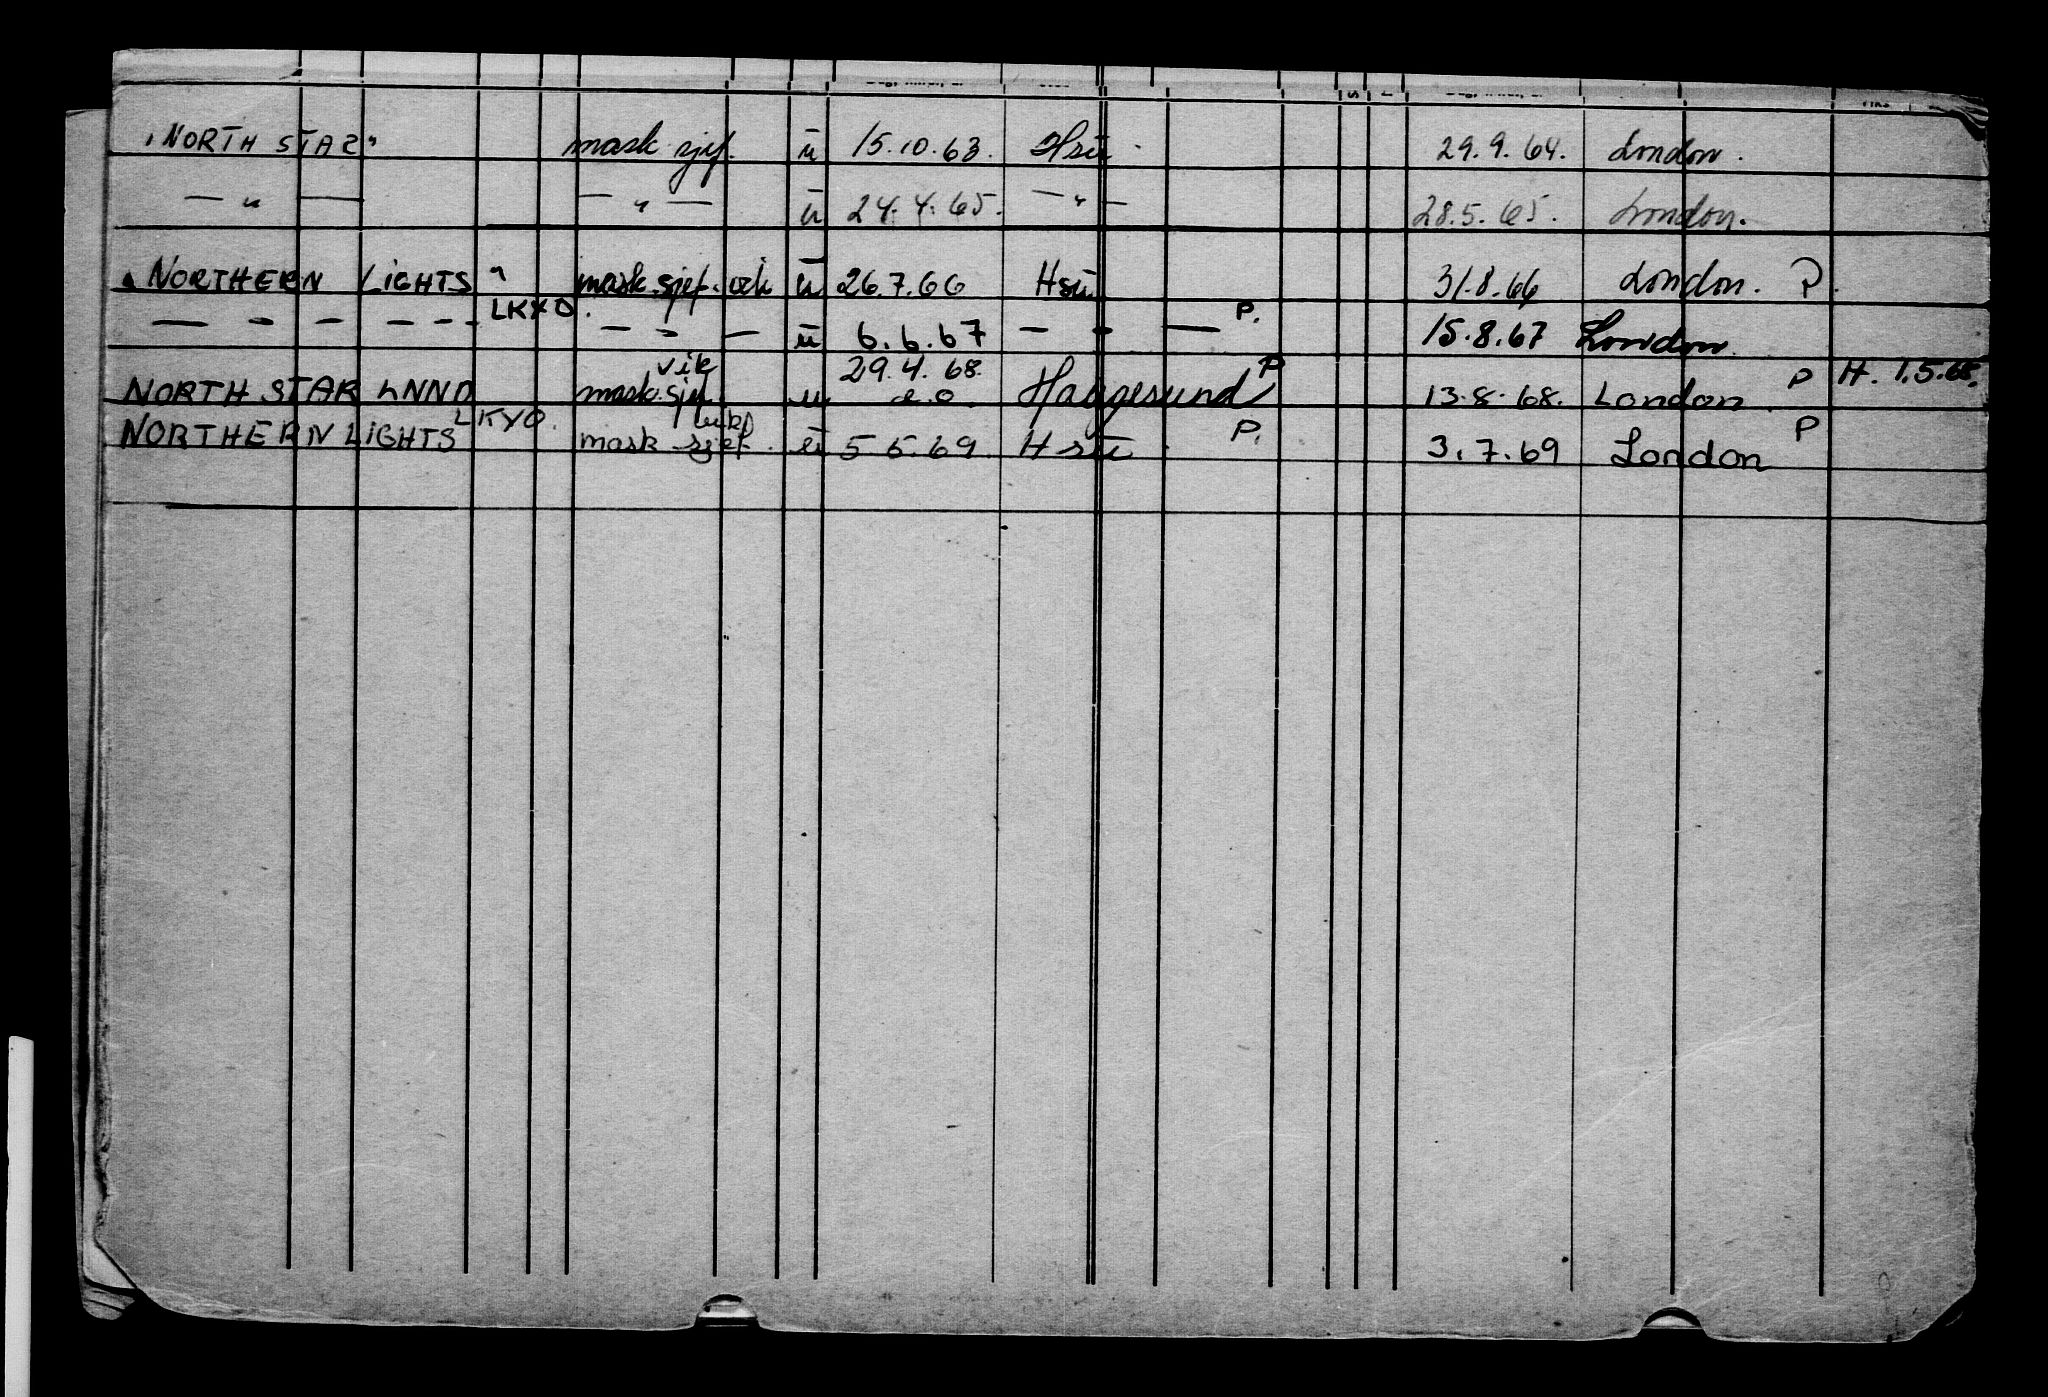 "NORTH STAR" mask sjef. ū 15.10.63. Hsū. 29.9.64. London.
— " — — " — ū 24.4.65. — " — 28.5.65. London.
"NORTHERN LIGHTS" mask.sjef. vik ū 26.7.66 Hsū 31.8.66 London. P.
— - - - - - LKYO. — - — ū 6.6.67 — - — P. 15.8.67 London.
NORTH STAR LNNO mask.sjef vik u 29.4.68. Haugesund P 13.8.68. London. P H. 1.5.68.
NORTHERN LIGHTS LKYO. mask sjef. ū 5.5.69. Hsū. P. 3.7.69 London P